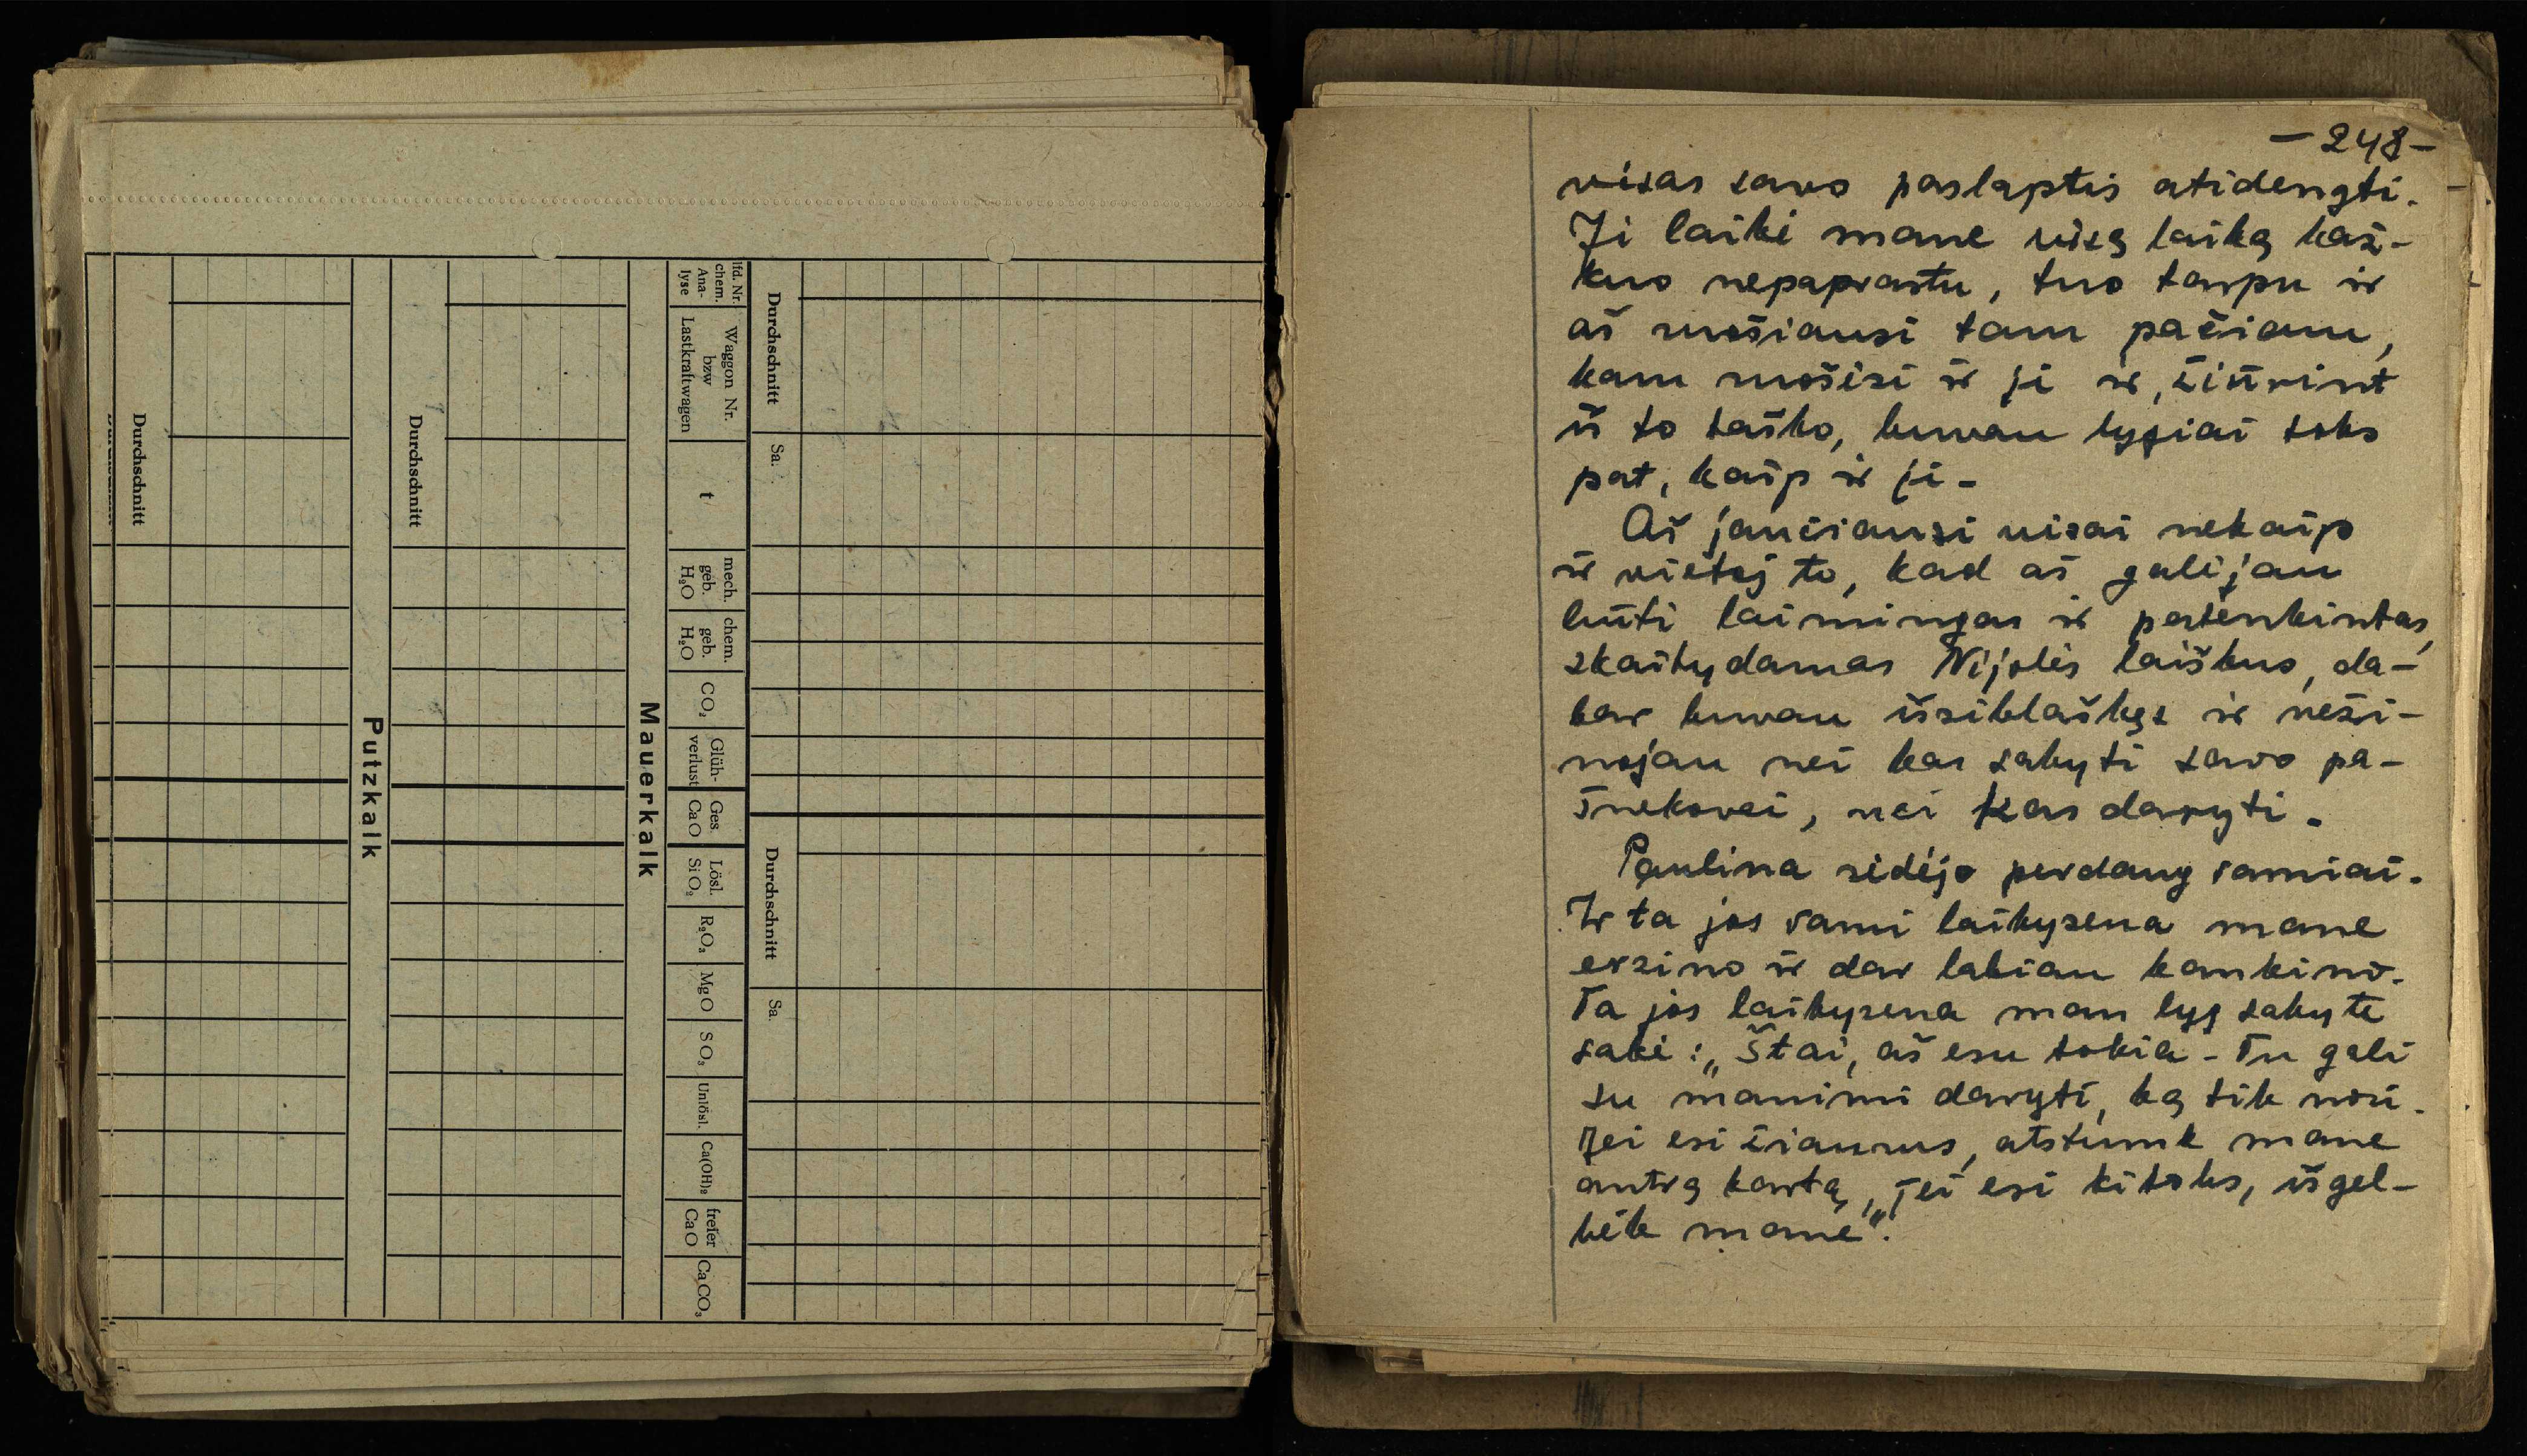 Durchschnitt
Sa.
Durchschnitt
Sa.
lfd. Nr.
chem.
Ana-
lyse
Waggon Nr.
bzw
Lastkraftwagen
t
mech.
geb.
H₂O
chem.
geb.
H₂O
CO₂
Glüh-
verlust
Ges.
CaO
Lösl.
SiO₂
R₂O₃
MgO
SO₃
Unlösl.
Ca(OH)₂
freier
CaO
CaCO₃
Mauerkalk
Durchschnitt
Putzkalk
Durchschnitt
— 248 —
visas savo paslaptis atidengti.
Ji laikė mane visą laiką kaž-
kuo nepaprastu, tuo tarpu ir
aš ruošiausi tam pačiam,
kam ruošėsi ir ji ir, žiūrint
iš to taško, buvau lygiai toks
pat, kaip ir ji.
Aš jaučiausi visai nekaip
ir vietoj to, kad aš galėjau
būti laimingas ir patenkintas,
skaitydamas Nijolės laiškus, da-
bar buvau išsiblaškęs ir neži-
nojau nei kas sakyti savo pa-
šnekovei, nei kas daryti.
Paulina sėdėjo perdaug ramiai.
Ir ta jos rami laikysena mane
erzino ir dar labiau kankino.
Ta jos laikysena man lyg sakyte
sakė: „Štai, aš esu tokia. Tu gali
su manimi daryti, ką tik nori.
Jei esi žiaurus, atstumk mane
antrą kartą, jei esi kitoks, išgel-
bėk mane".